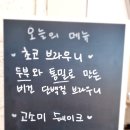 오늘의 메뉴
• 초코 브라우니 •
두부와 통밀로 만든
비건 단백질 브라우니
• 고소미 두케이크 •